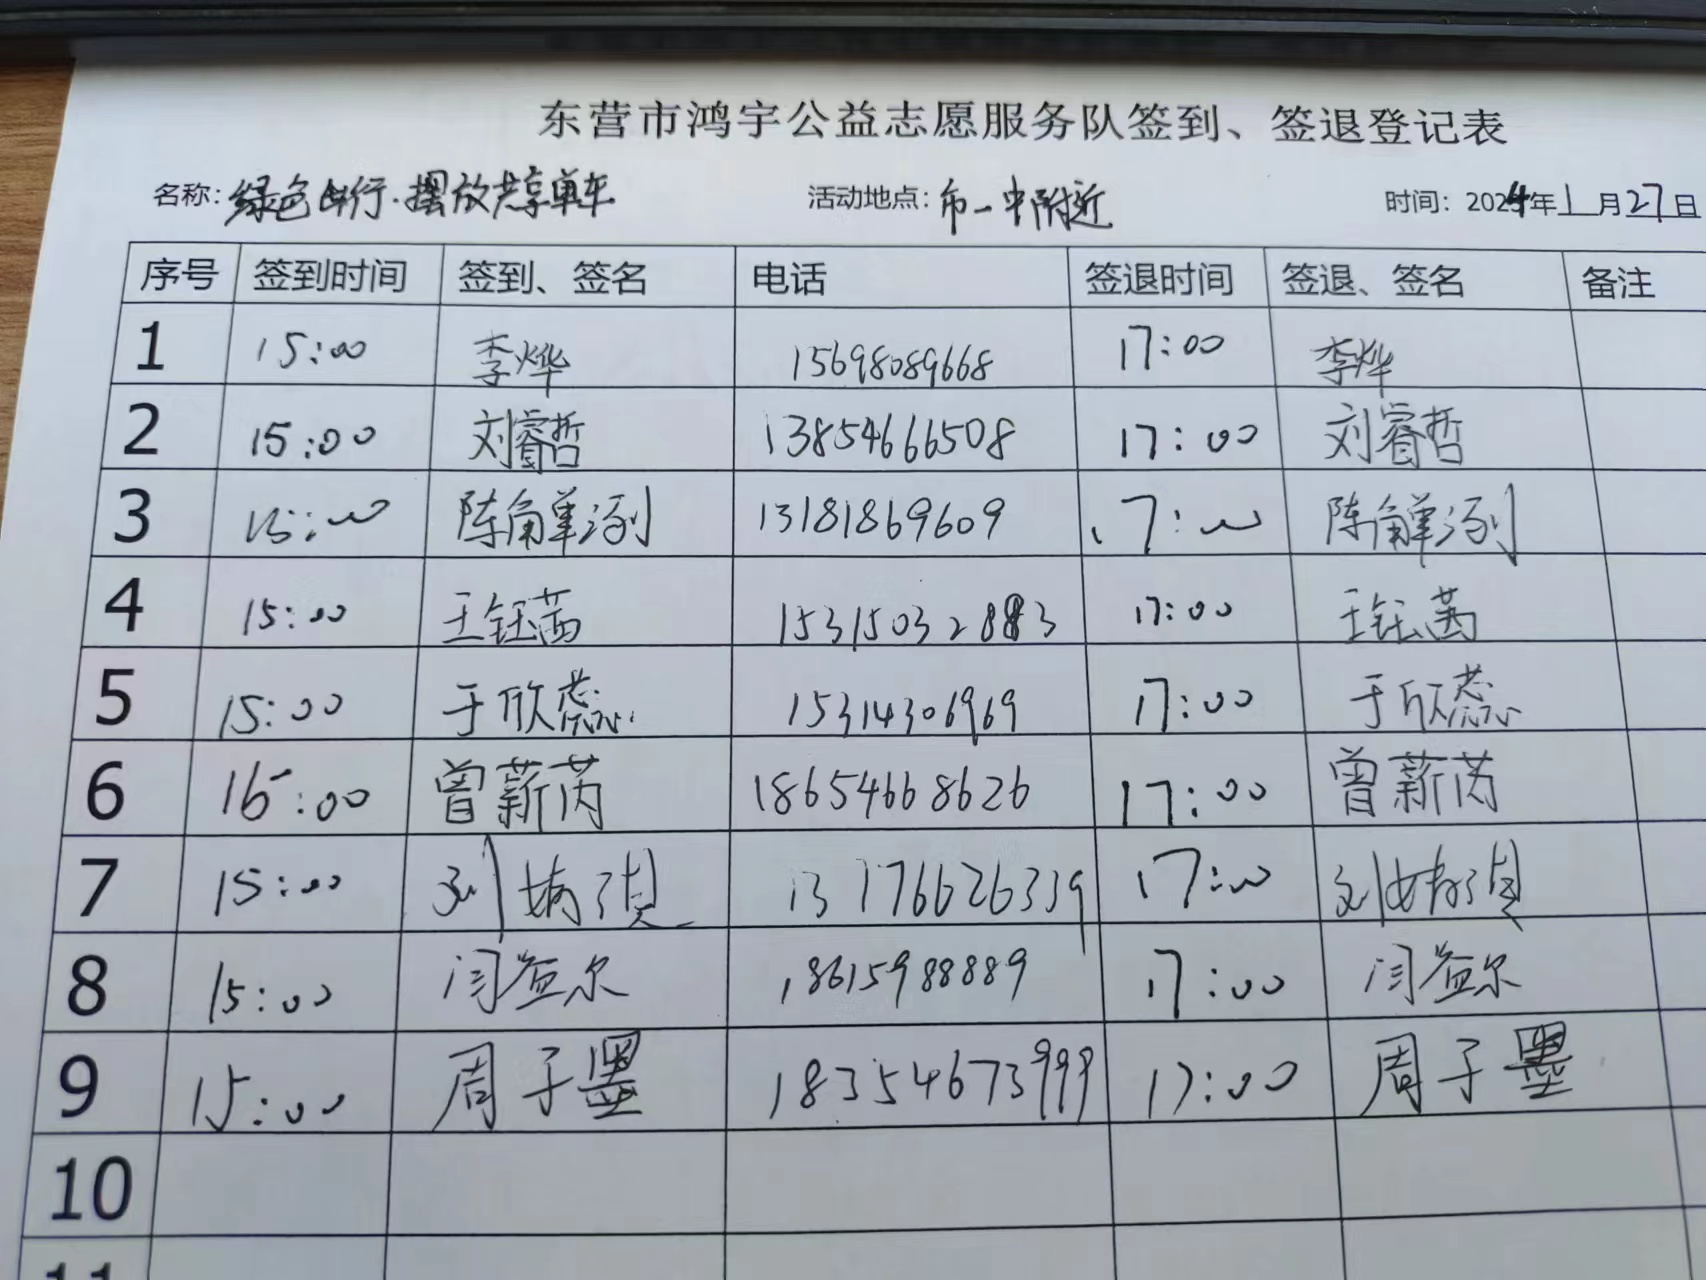 东营市鸿宇公益志愿服务队签到、签退登记表
名称：绿色出行·摆放共享单车 活动地点：市一中附近 时间：2024年1月27日
序号 签到时间 签到、签名 电话 签退时间 签退、签名 备注
1 15:00 李烨 15698089668 17:00 李烨
2 15:00 刘睿哲 13854666508 17:00 刘睿哲
3 15:00 陈 13181869609 17:00 陈
4 15:00 王钰茜 15315032883 17:00 王钰茜
5 15:00 于欣蕊 15314306969 17:00 于欣蕊
6 15:00 曾薪芮 18654668626 17:00 曾薪芮
7 15:00 刘 13176626339 17:00 刘
8 15:00 闫益尔 18615988889 17:00 闫益尔
9 15:00 周子墨 18354673999 17:00 周子墨
10
11